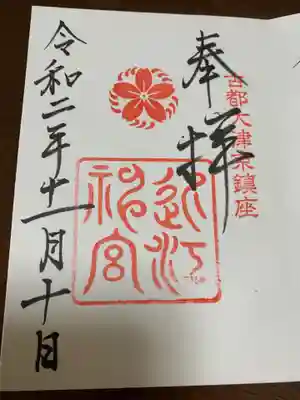 古都大津京鎮座
奉拝
近江
神宮
令和二年十一月十日